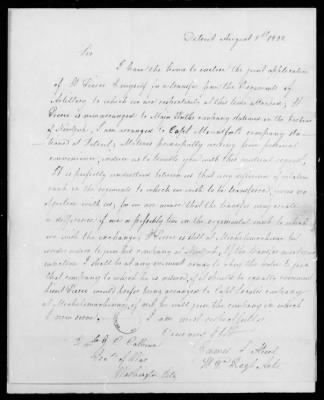 Detroit August 5th 1822
Sir
I have the honor to enclose the joint application
of Lt Pierce & myself for a transfer from the Regiments of
Artillery to which we are respectively at this time attached; Lt
Pierce is now arranged to Major company stationed in the harbour
of Newyork, I am arranged to Capt Mountforts company sta
tioned at Detroit; Motives principally arising from personal
convenience, induce us to trouble you with this mutual request,
It is perfectly understood between us that any difference of relative
rank in the regiments to which we wish to be transferred, was no
objection with us; for we are aware that the transfer may create
a difference, if we respectively in the regimental rank to which
we wish the exchange; Lt Pierce is still at Michilimackinac but
under orders to join his company at Newyork, If the transfer meets
I shall be at any moment ready to obey the order to join
that company to which he is ordered, if it should be equally
Pierce would prefer being arranged to Capt company
at Michilimackinac, if not, he will join the company in which
I am now.
I am most respectfully
Your Obt
To Hon J C Calhoun
Secty of War
Washington City